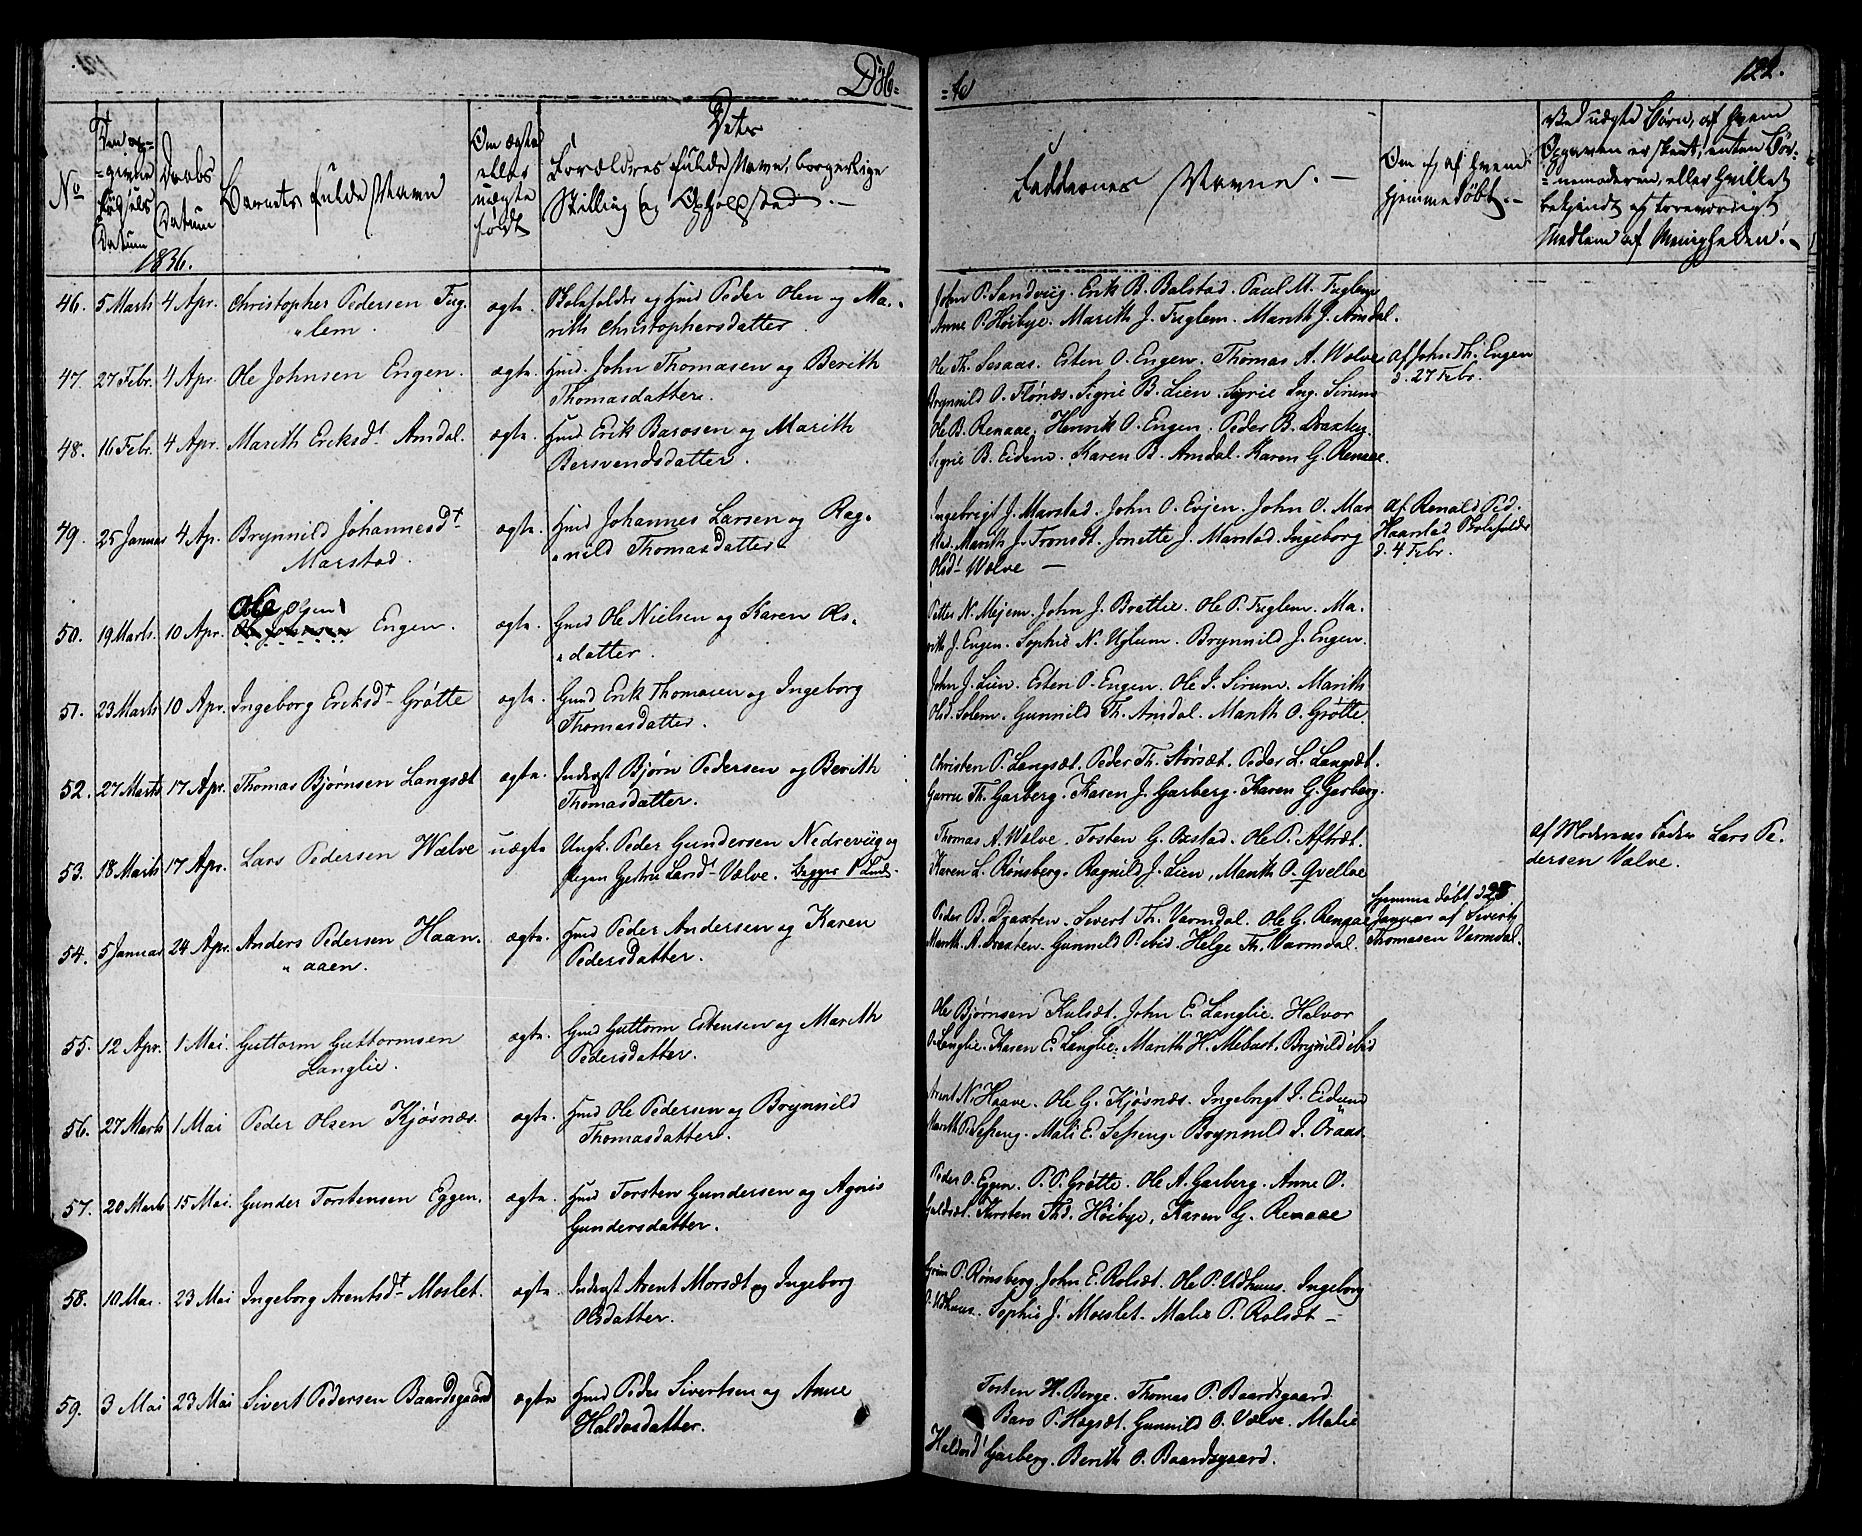 Døb=
=te
122.
No
Den op=
=givne
Fødsels
Datum
Daabs
Datum
1836.
Barnets fulde Navn
Om ægte
eller
uægte
født
Dets
Forældres fulde Navn, borgerlige
Stilling og Opholdsted. —
Faddernes Navne. —
Om og af hvem
hjemmedøbt. —
Ved uægte Børn, af hvem
Opgaven er skeet, enten Bør=
=nemoderen, eller hvilket
bekjendt og troværdigt
Medlem af Menigheden. —
46. 5 Marts 4 Apr. Christopher Pedersen Fug-
"lem. ægte. Skoleholder og Hmd Peder Olsen og Ma-
rith Christophersdatter.
John P. Sandviig. Erik B. Balstad. Paul M. Fuglem
Anne P. Høibye. Marith J. Fuglem. Marith J. Amdal.
47. 27 Febr. 4 Apr. Ole Johnsen Engen. ægte. Hmd. John Thomasen og Berith
Thomasdatter.
Ole Th. Sesaas. Esten O. Engen. Thomas A. Wolve
Brynnild O. Flønes. Sigrie B. Lien. Sigrie Ing. Sirum
af John Th. Engen
d. 27 Febr.
48. 16 Febr. 4 Apr. Marith Eriksdt Amdal. ægte. Hmd Erik Barosen og Marith
Bersvendsdatter.
Ole B. Renaae. Henrik O. Engen. Peder B. Draxten.
Sigrie B. Eidem. Karen B. Amdal. Karen G. Renaae.
49. 25 Januar 4 Ap. Brynnild Johannesdt
Marstad. ægte. Hmd Johannes Larsen og Rag-
"nild Thomasdatter
Ingebrigt J. Marstad. John O. Evjen. John O. Mar
stad. Marith J. Tronsdt. Jonette J. Marstad. Ingeborg
Olsdt Wælve —
af Renald Ped.
Haarstad Skoleholder
d. 4 Febr.
50. 19 Marts. 10 Apr. Ole Olsen
Engen. ægte. Gmd Ole Nielsen og Karen Ols-
"datter.
Petter N. Mejem. John J. Brattlie. Ole P. Fuglem. Ma-
rith J. Engen. Sophie N. Uglum. Brynnild J. Engen.
51. 23 Marts 10 Apr. Ingeborg Eriksdt Grøtte ægte. Gmd Erik Thomasen og Ingeborg
Thomasdatter.
John J. Lien. Esten O. Engen. Ole J. Sirum. Marith
Olsd. Solem. Gunnild Th. Amdal. Marith O. Grøtte.
52. 27 Marts 17 Apr. Thomas Bjørnsen Langsæt ægte. Inderst Bjørn Pedersen og Berith
Thomasdatter.
Christen P. Langsæt. Peder Th. Storsæt. Peder L. Langsæt.
Guru Th. Garberg. Karen J. Garberg. Karen G. Garberg.
53. 18 Marts 17 Apr. Lars Pedersen Wælve uægte Ungk. Peder Gundersen Nedreviig og
Pigen Gjertru Larsdt Vælve.
Thomas A. Wolve. Torsten G. Oxstad. Ole P. Aftræt.
Karen L. Rønsberg. Ragnild J. Lien. Marith O. Qvelloe
af Moderens Fader Lars Pe-
dersen Vælve.
54. 5 Januar 24 Apr. Anders Pedersen Haan-
"aaen. ægte. Hmd Peder Andersen og Karen
Pedersdatter.
Peder B. Draxten. Sivert Th. Varmdal. Ole G. Renaae
Marith A. Draxten. Gunnild P. ibid. Helge Th. Varmdal.
Hjemme døbt d 28
Januar af Sivert
Thomasen Varmdal.
55. 12 Apr. 1 Mai. Guttorm Guttormsen
Langlie. ægte. Gmd Guttorm Estensen og Marith
Pedersdatter.
Ole Bjørnsen Kulsæt. John E. Langlie. Halvor
O. Langlie. Karen E. Langlie. Marith H. Mebust. Brynild ibid
56. 27 Marts 1 Mai Peder Olsen Kjøsnæs. ægte. Hmd Ole Pedersen og Brynnild
Thomasdatter.
Arent N. Haave. Ole G. Kjøsnæs. Ingebrigt I. Eidum
Marith P. Sesseng. Mali E. Sesseng. Brynnild I. Øraas.
57. 20 Marts 15 Mai. Gunder Torstensen Eggen. ægte. Hmd Torsten Gundersen og Agnis
Gundersdatter.
Peder O. Eggen. P. P. Grøtte. Ole A. Garberg. Anne O.
Kirsten Thd. Høibye. Karen G. Renaae
58. 10 Mai. 23 Mai Ingeborg Arentsdt Moslet. ægte. Inderst Arent Morsæt og Ingeborg
Olsdatter.
P. Rønsberg. John E. Rolsæt. Ole P. Udhuus. Ingeborg
O. Udhuus. Sophie J. Moslet. Malie P. Rolsæt —
59. 3 Mai 23 Mai Sivert Pedersen Baardsgaard ægte Hmd Peder Sivertsen og Anne
Haldosdatter.
Tosten H. Berge. Thomas P. Baardsgaard
Baro P. Hogsæt. Gunnild O. Vælve. Malie
Haldosdt Garberg. Berith O. Baardsgaard.